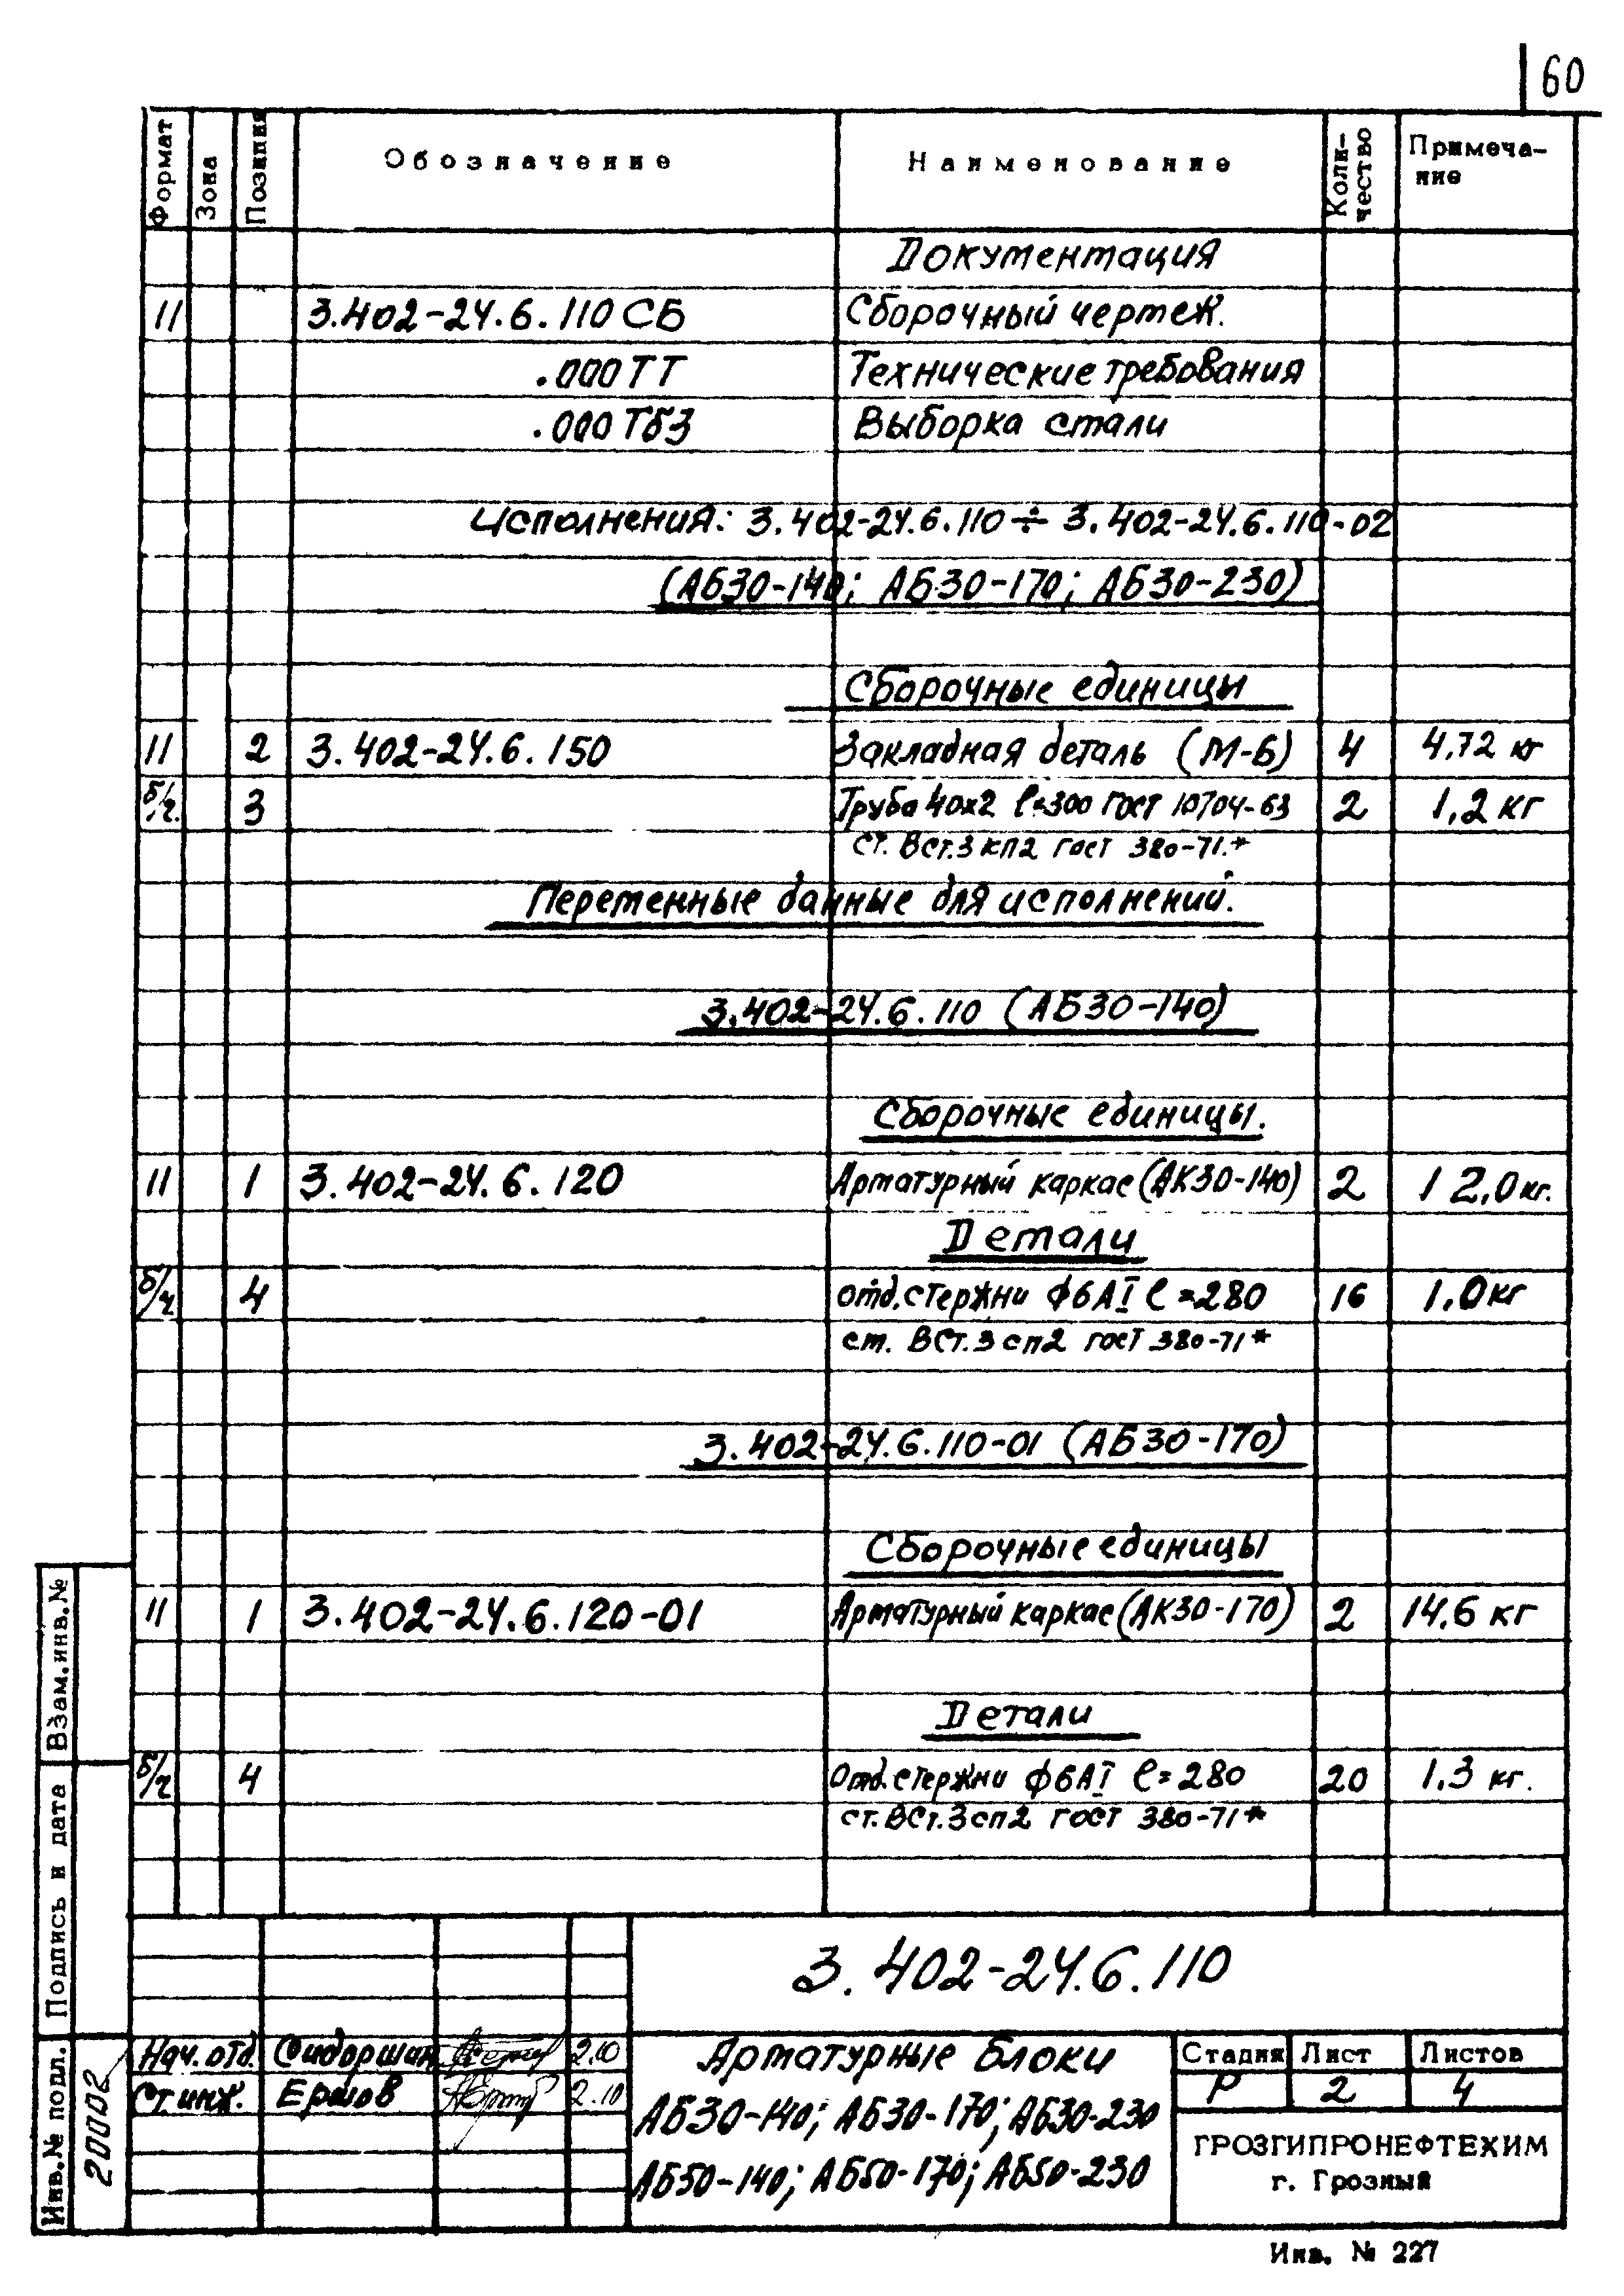 60
Формат Зона Позиция Обозначение Наименование Коли-чество Примеча-ние
Документация
11 3.402-24.6.110 СБ Сборочный чертеж.
.000 ТТ Технические требования
.000 ТБ3 Выборка стали
Исполнения: 3.402-24.6.110 ÷ 3.402-24.6.110-02
(АБ30-140; АБ30-170; АБ30-230)
Сборочные единицы
11 2 3.402-24.6.150 Закладная деталь (М-6) 4 4,72 кг
б/ч. 3 Труба 40х2 ℓ=300 ГОСТ 10704-63 2 1,2 кг
ст. ВСт.3 кп2 гост 380-71.*
Переменные данные для исполнений.
3.402-24.6.110 (АБ30-140)
Сборочные единицы.
11 1 3.402-24.6.120 Арматурный каркас (АК30-140) 2 12,0 кг.
Детали
б/ч 4 отд. стержни ф6АI ℓ=280 16 1.0 кг
ст. ВСт.3 сп2 гост 380-71*
3.402-24.6.110-01 (АБ30-170)
Сборочные единицы
11 1 3.402-24.6.120-01 Арматурный каркас (АК30-170) 2 14,6 кг
Детали
б/ч 4 Отд. стержни ф6АI ℓ=280 20 1.3 кг.
ст. ВСт.3 сп2 гост 380-71*
3.402-24.6.110
Нач. отд. Сидоршин 2.10
Ст. инж. Ершов 2.10
Арматурные Блоки
АБ30-140; АБ30-170; АБ30-230
АБ50-140; АБ50-170; АБ50-230
Стадия Лист Листов
Р 2 4
ГРОЗГИПРОНЕФТЕХИМ
г. Грозный
Взам. инв. №
Подпись и дата
Инв. № подл.
20002
Инв. № 227